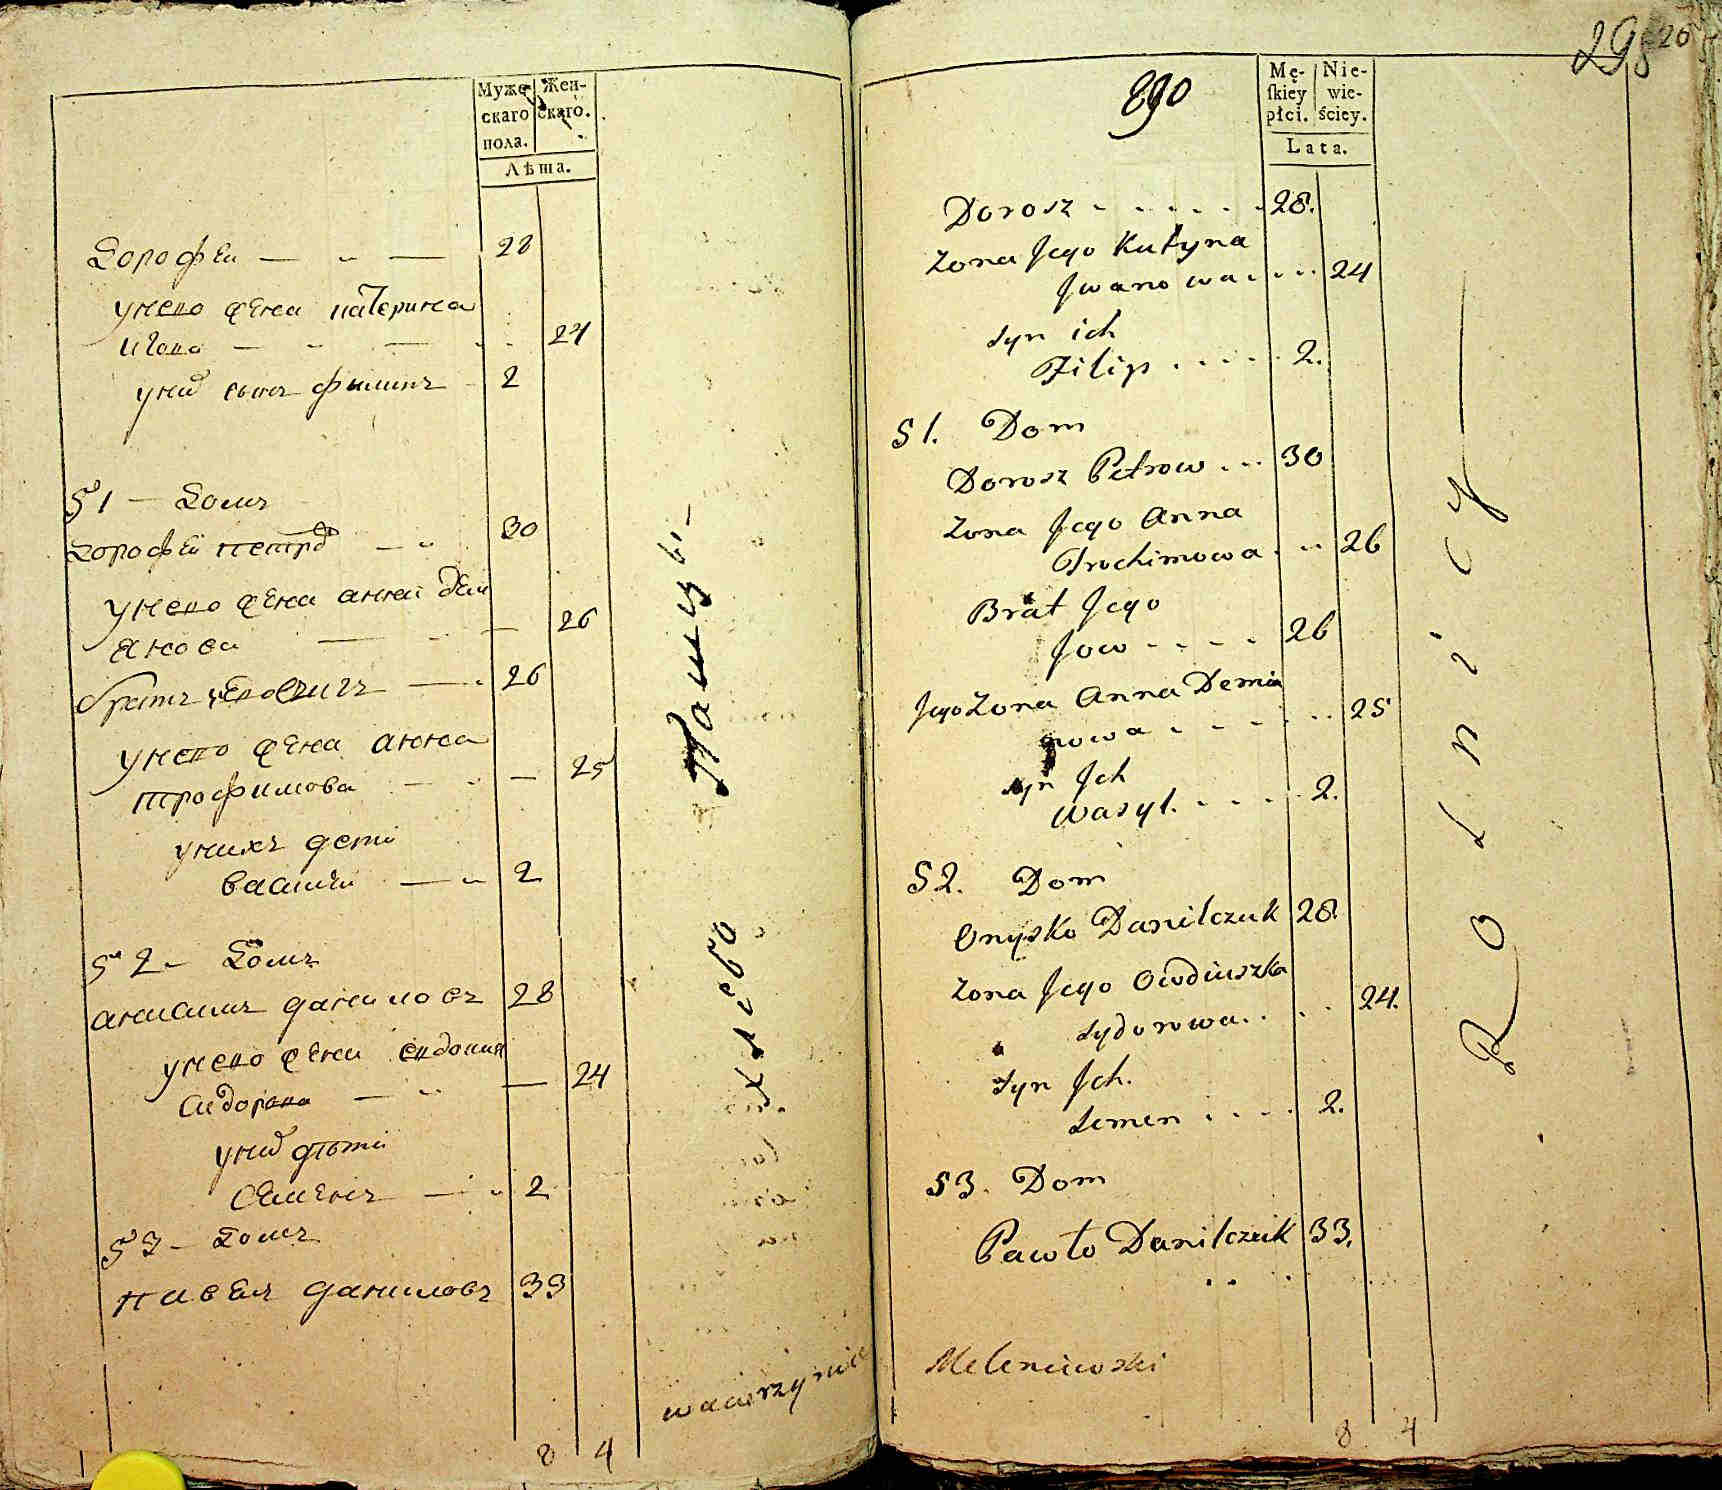 Муже-
скаго
пола.
Жен-
скаго.
Лѣта.
Дорофеи — „ — 28
унево жена катерина
ивова — „ — 24
унихъ сынъ филипъ 2
51 — Домъ
Дорофей петровъ — „ 30
унево жена анна дем
янова — „ — 26
братъ ево — 26
унево жена анна
трофимова — „ — 25
унихъ дети
василеи — „ 2
52 — Домъ
анисимъ даниловъ 28
унево жена евдокия
сидорова — „ — 24
унихъ дѣти
семенъ — „ 2
53 — Домъ
павелъ даниловъ 33
8 4
хлебо Пашцы
wawrzynie
295 26
890
Mę-
skiey
płci.
Nie-
wie-
ściey.
Lata.
Dorosz - - - - - - 28.
Zona Jego Katyna
Jwanowa - - - - 24
Syn ich
Filip - - - - - 2.
51. Dom
Dorosz Petrow - - - 30
Zona Jego Anna
Trochimowa - - - 26
Brat Jego
Jow - - - - 26
Jego Zona Anna Demia
nowa - - - - - - 25
syn Jch
Wasyl. - - - - - 2.
52. Dom
Onysko Danilczuk 28.
Zona Jego Owdiuszka
Sydorowa. - - - 24.
Syn Jch.
Semen - - - - 2.
53. Dom
Pawło Danilczuk 33.
Meleniewski
8 4
Rolnicy —